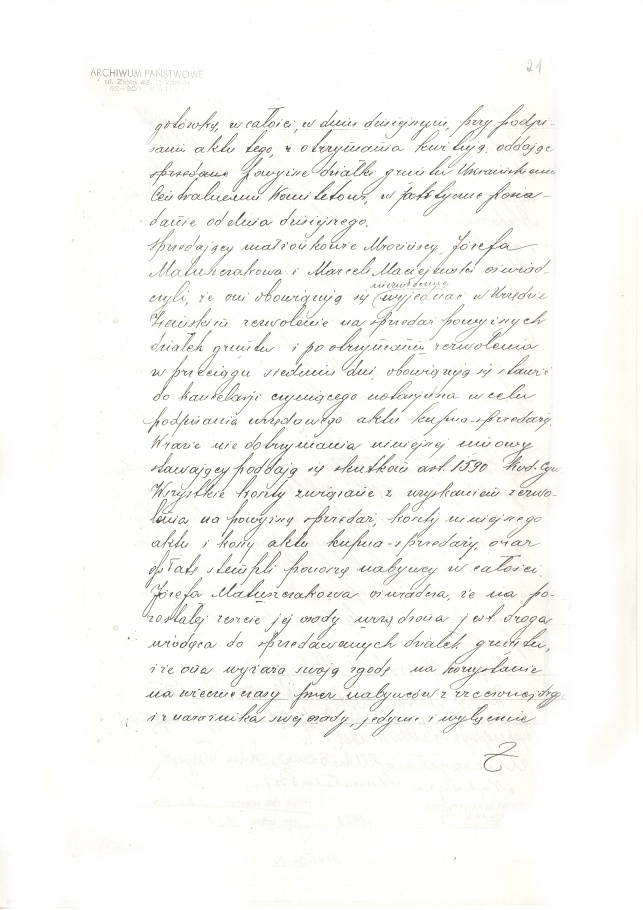 ARCHIWUM PAŃSTWOWE
21
gotówką, w całości, w dniu dzisiejszym, przy podpi-
saniu aktu tego, z otrzymania kwitują, oddając
sprzedane powyżne działki gruntu Ukraińskiemu
Centralnemu Komitetowi, w faktyczne posia-
danie od dnia dzisiejszego.
Sprzedający małżonkowie Mrocińscy, Józefa
Matuszczakowa i Marceli Maciejewski oświad-
czyli, że oni obowiązują się niezwłocznie wyjednać w Urzędzie
Ziemskim zezwolenie na sprzedaż powyższych
działek gruntu i po otrzymaniu zezwolenia
w przeciągu siedmiu dni, obowiązują się stawić
do kancelarji czyniącego notarjusza w celu
podpisania urzędowego aktu kupna-sprzedaży.
W razie niedotrzymania niniejszej umowy
stawający poddają się skutkom art. 1590 Kod. Cyw.
Wszystkie koszty związane z uzyskaniem zezwo-
lenia na powyższą sprzedaż, koszty niniejszego
aktu i koszty aktu kupna-sprzedaży, oraz
opłatę stempli ponoszą nabywcy w całości.
Józefa Matuszczakowa oświadcza, że na po-
zostałej reszcie jej osady urządzona jest droga
wiodąca do sprzedawanych działek gruntu,
i że ona wyraża swoją zgodę na korzystanie
na wieczne czasy przez nabywców z rzeczonej drogi
i z swej osady, jedynie i wyłącznie